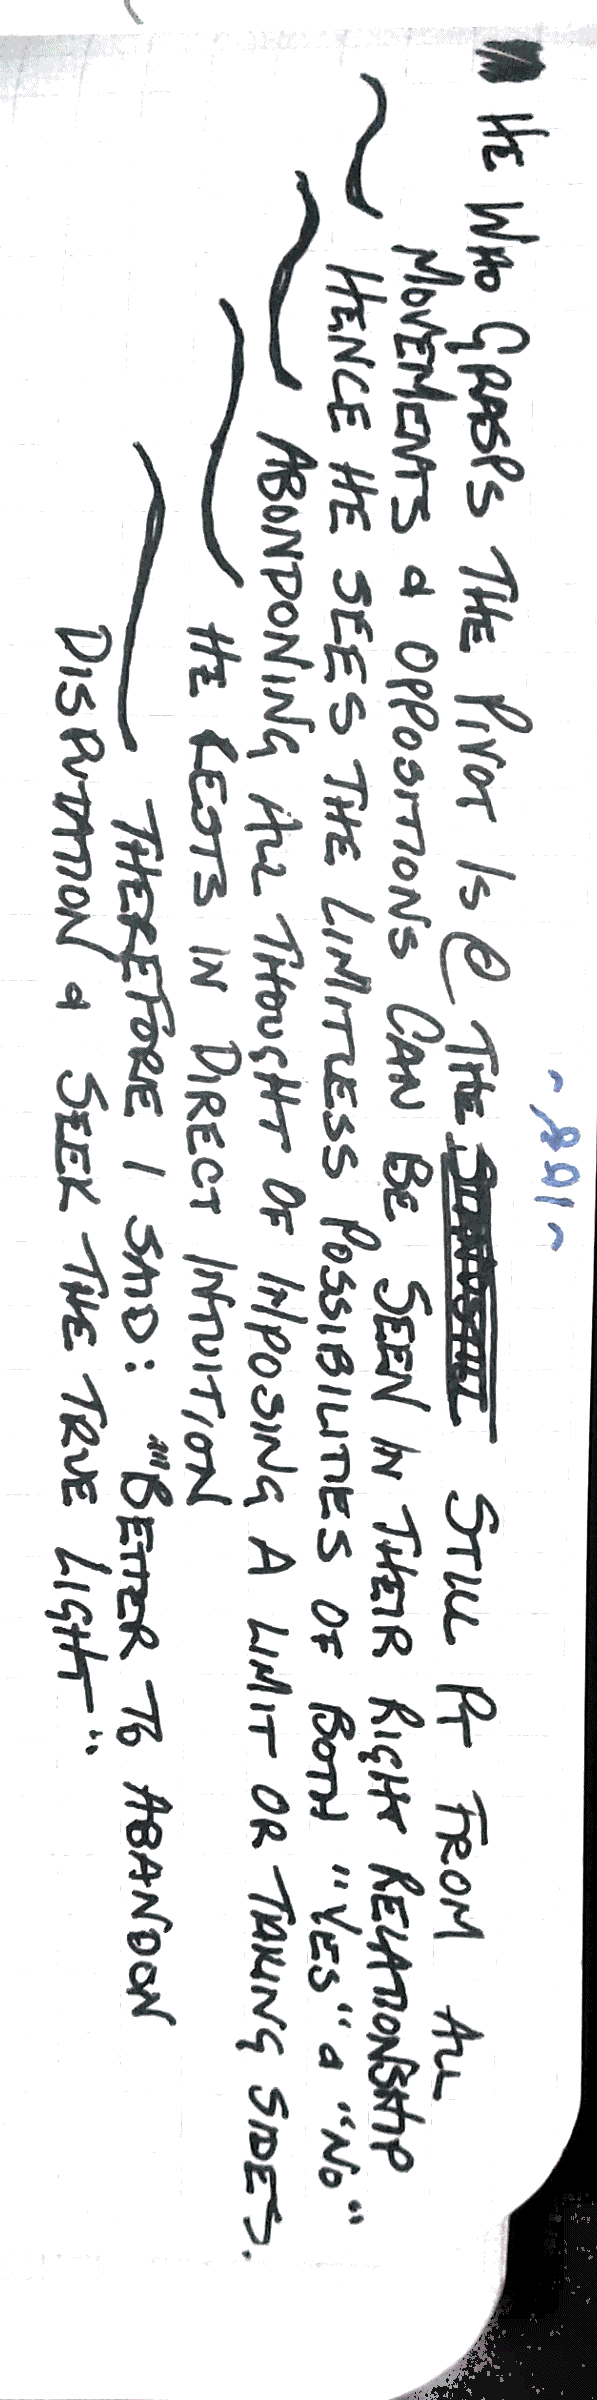 ~ 168 ~
HE WHO GRASPS THE PIVOT IS @ THE STILL PT FROM ALL
MOVEMENTS & OPPOSITIONS CAN BE SEEN IN THEIR RIGHT RELATIONSHIP
HENCE HE SEES THE LIMITLESS POSSIBILITIES OF BOTH "YES" & "NO"
ABONDONING ALL THOUGHT OF IMPOSING A LIMIT OR TAKING SIDES.
HE RESTS IN DIRECT INTUITION
THEREFORE I SAID: "BETTER TO ABANDON
DISPUTATION & SEEK THE TRUE LIGHT"